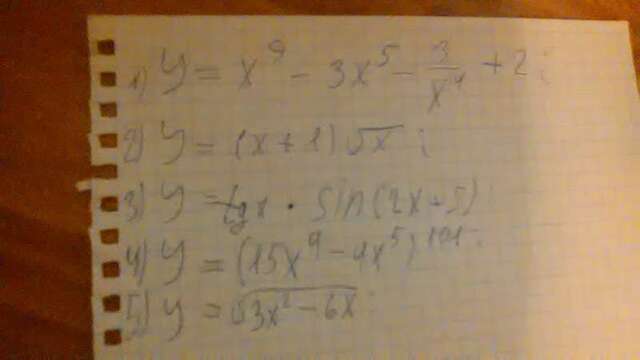 1) y = x⁹ - 3x⁵ - 3/x⁴ + 2;
2) y = (x + 1)√x;
3) y = tg x · sin(2x + 5)
4) y = (15x⁹ - 4x⁵)¹⁰¹;
5) y = √3x² - 6x;